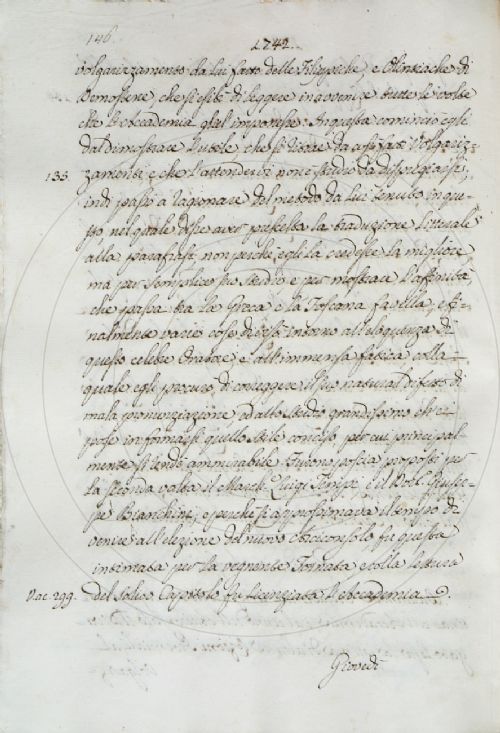 146
1742.
volgarizzamento da lui fatto delle Filippiche, e Olintiache di
Demostene, che si esibì di leggere in avvenire tutte le volte
che l'Accademia gliel' imponesse. In questa cominciò egli
dal dimostrare l'utile, che si ritrae da così fatti Volgariz=
133 zamenti, e che l'attendervi non è studio da dispregiarsi,
indi passò a ragionare del metodo da lui tenuto in que=
sto nel quale disse aver prescelta la traduzione litterale
alla parafrasi, non perchè egli la credesse la migliore
ma per semplice suo studio e per mostrare l'affinità,
che passa tra la Greca, e la Toscana favella, e fi=
nalmente varie cose disse intorno all'eloquenza di
questo celebre Oratore, e all'immensa fatica colla
quale egli procurò di correggere il suo natural difetto di
mala pronunziazione, ed allo studio grandissimo che e'
pose in formarsi quello stile conciso, per cui principal=
mente si rendè ammirabile. Furono poscia proposti per
la seconda volta il March. Luigi e il Dott. Giusep=
pe Bianchini, e perchè si approssimava il tempo di
venire all'elezione del nuovo Arciconsolo fu questa
intimata per la vegnente Tornata e colla lettura
V. ac. 299. del solito Capitolo fu licenziata l'Accademia.
Giovedì